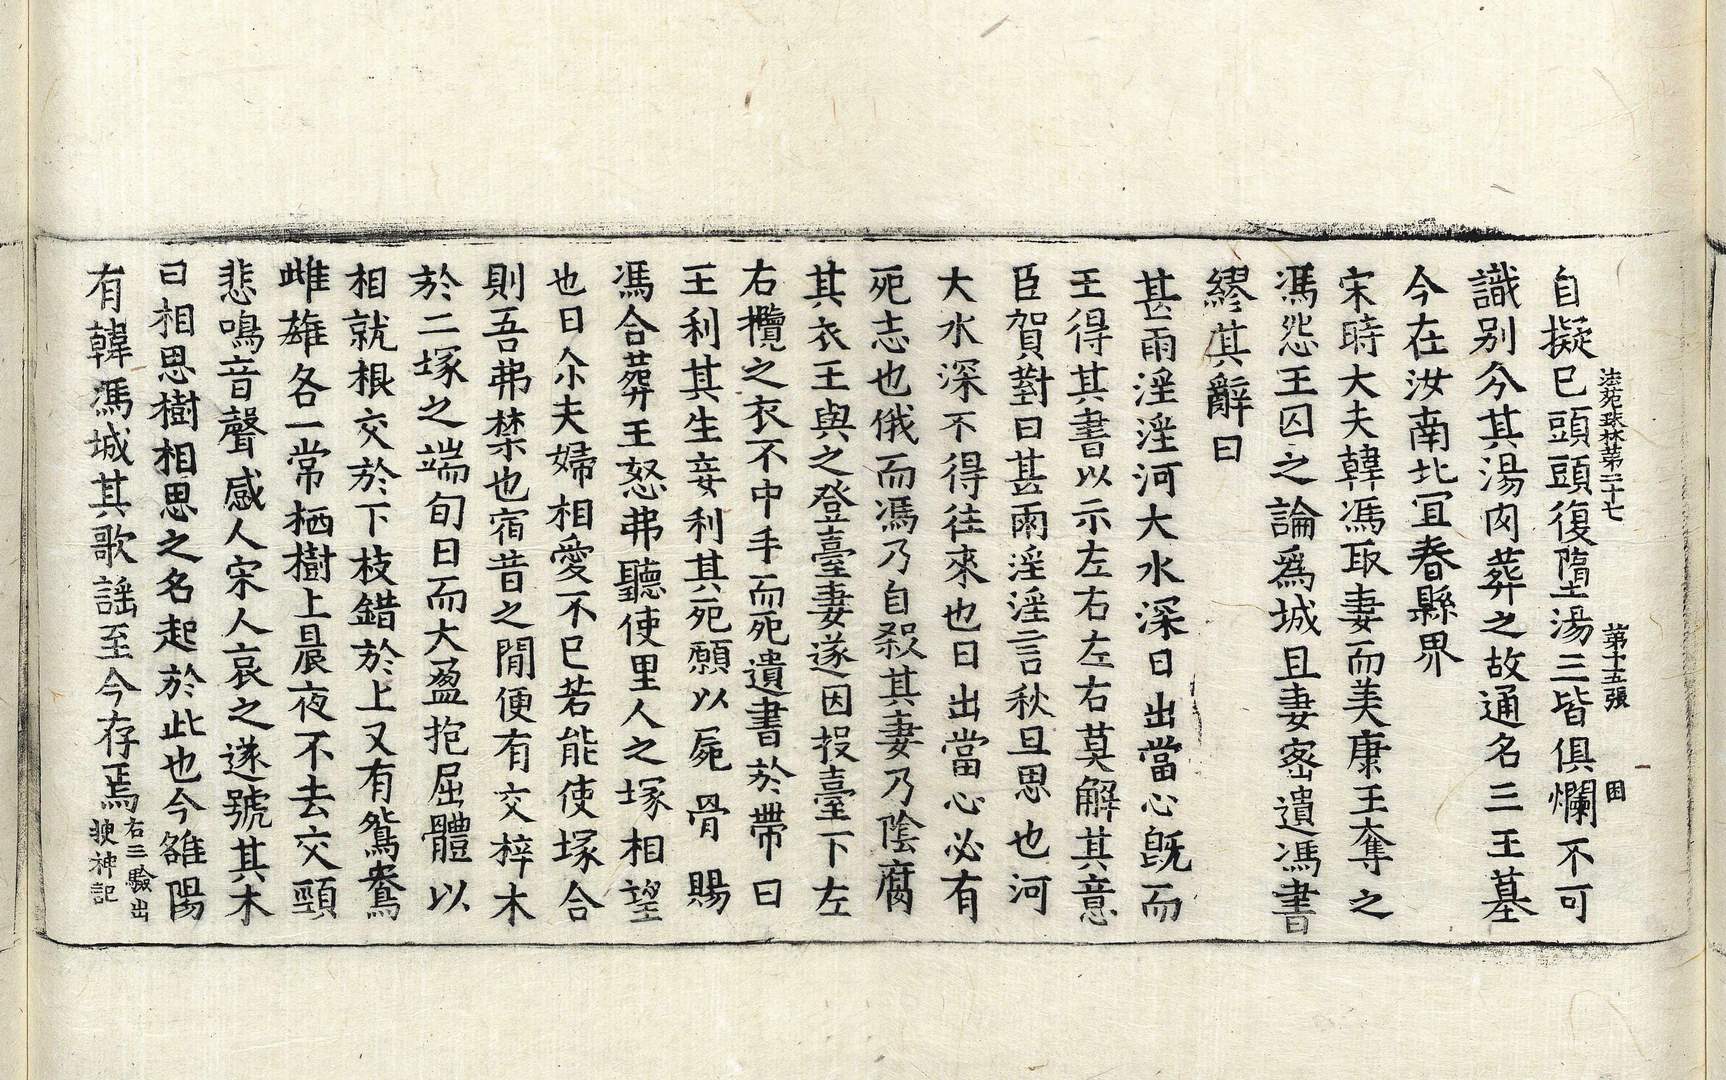 法苑珠林第二十七　第十五張　困
自擬已頭頭復墮湯三皆俱爛不可
識别分其湯肉葬之故通名三王墓
今在汝南北冝春縣界
宋時大夫韓馮取妻而美康王奪之
馮怨王囚之論爲城旦妻密遺馮書
繆其辭曰
甚雨淫淫河大水深日出當心旣而
王得其書以示左右左右莫解其意
臣賀對曰甚雨淫淫言秋且思也河
大水深不得往來也日出當心必有
死志也俄而馮乃自殺其妻乃陰腐
其衣王與之登臺妻遂因投臺下左
右攬之衣不中手而死遺書於帶曰
王利其生妾利其死願以屍骨賜
馮合葬王怒弗聽使里人之塚相望
也曰尒夫婦相愛不已若能使塚合
則吾弗禁也宿昔之閒便有交梓木
於二塚之端旬日而大盈抱屈體以
相就根交於下枝錯於上又有鴛鴦
雌雄各一常栖樹上晨夜不去交頸
悲鳴音聲感人宋人哀之遂號其木
曰相思樹相思之名起於此也今雒陽
有韓馮城其歌謡至今存焉右三驗出
搜神記